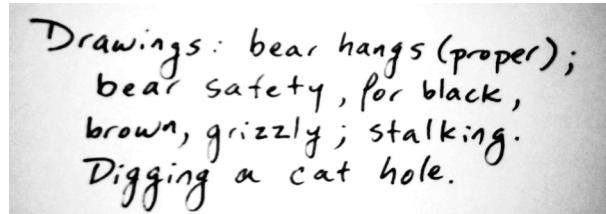 Drawings: bear hangs (proper);
bear safety, for black,
brown, grizzly; stalking.
Digging a cat hole.